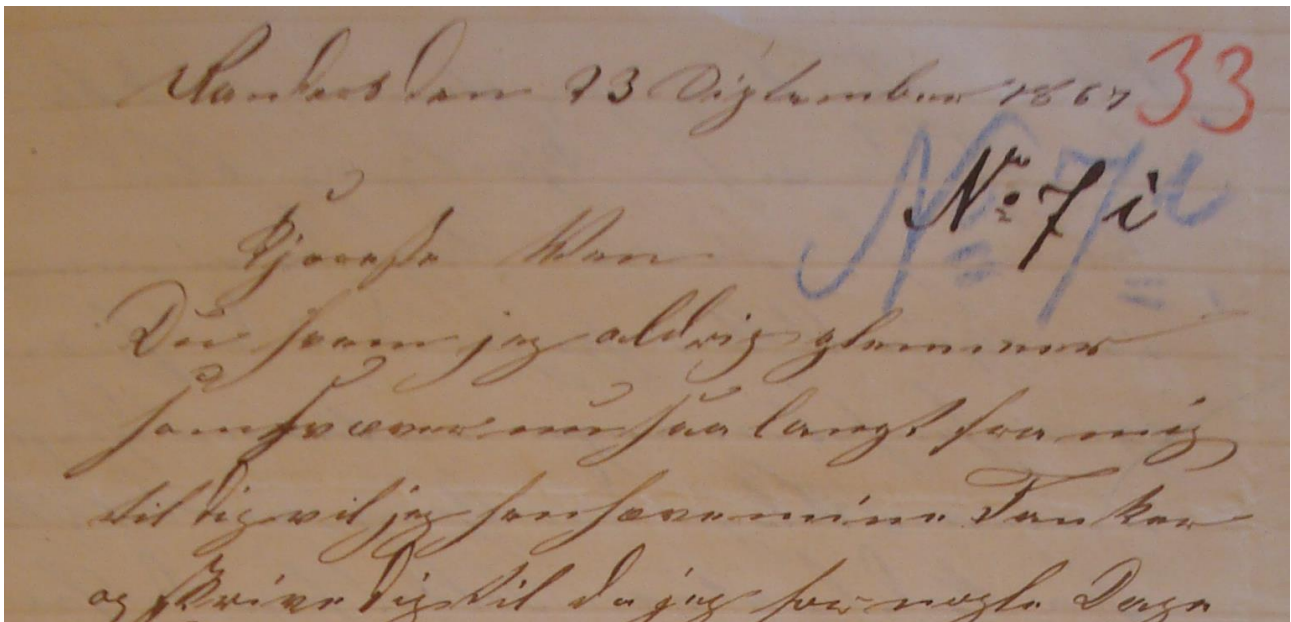 Randers den 23 Digtember 1867 33
No 7 i
Kjæreste Ven
Du som jeg aldrig glemmer
som svæver nu saa langt fra mig
til dig vil jeg henhæve mine Tanker
og skrive dig til da jeg for nogle Dage